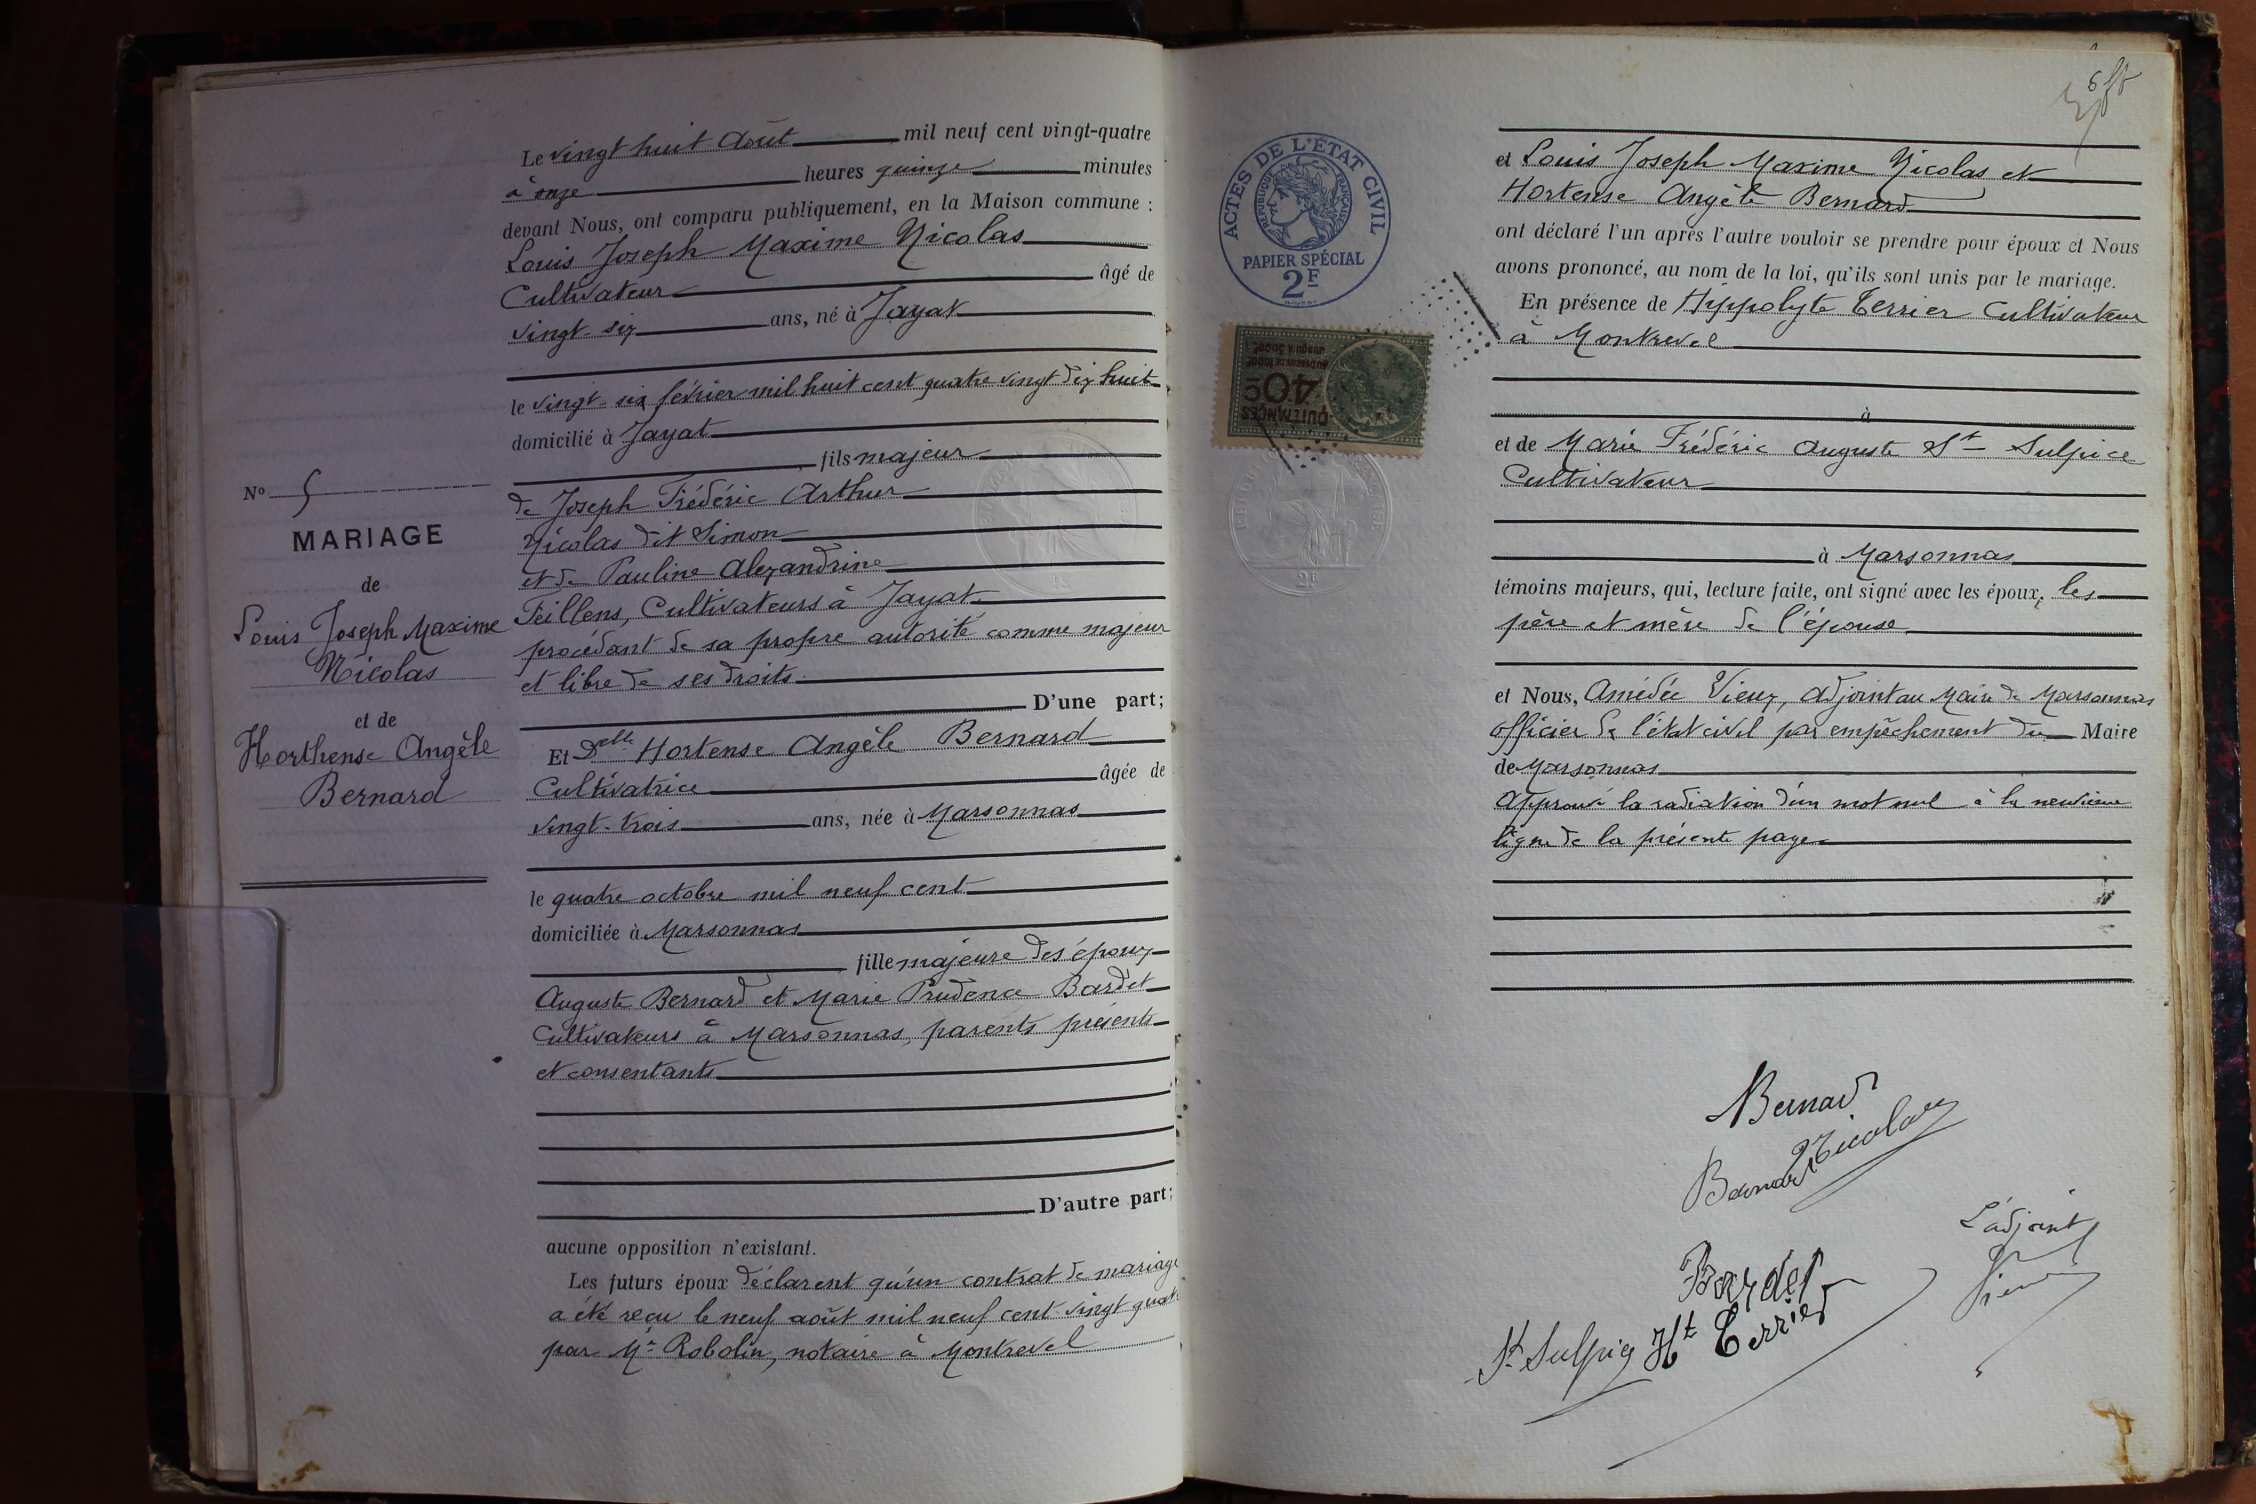 N° 5
MARIAGE
de
Louis Joseph Maxime
Nicolas
et de
Horthense Angèle
Bernard
Le vingt huit Août mil neuf cent vingt-quatre
à onze heures quinze minutes
devant Nous, ont comparu publiquement, en la Maison commune :
Louis Joseph Maxime Nicolas
Cultivateur âgé de
vingt-six ans, né à Jayat
le vingt-six février mil huit cent quatre vingt dix huit
domicilié à Jayat
fils majeur
de Joseph Frédéric Arthur
Nicolas dit Simon
et de Pauline Alexandrine
Feillens, Cultivateurs à Jayat
procédant de sa propre autorité comme majeur
et libre de ses droits.
D'une part;
Et Delle Hortense Angèle Bernard
Cultivatrice âgée de
vingt-trois ans, née à Marsonnas
le quatre octobre mil neuf cent
domiciliée à Marsonnas
fille majeure des époux
Auguste Bernard et Marie Prudence Bardet
Cultivateurs à Marsonnas, parents présents
et consentants
D'autre part;
aucune opposition n'existant.
Les futurs époux déclarent qu'un contrat de mariage
a été reçu le neuf août mil neuf cent vingt quatre
par Me Robolin, notaire à Montrevel
ACTES DE L'ÉTAT CIVIL
RÉPUBLIQUE FRANÇAISE
PAPIER SPÉCIAL
2F
QUITTANCES
40c
2F
et Louis Joseph Maxime Nicolas et
Hortense Angèle Bernard
ont déclaré l'un après l'autre vouloir se prendre pour époux et Nous
avons prononcé, au nom de la loi, qu'ils sont unis par le mariage.
En présence de Hippolyte Terrier Cultivateur
à Montrevel
à
et de Marie Frédéric Auguste St Sulpice
Cultivateur
à Marsonnas
témoins majeurs, qui, lecture faite, ont signé avec les époux, les
père et mère de l'épouse
et Nous, Amédée Vieux, adjoint au Maire de Marsonnas
officier de l'état civil par empêchement du Maire
de Marsonnas
Approuvé la radiation d'un mot nul à la neuvième
ligne de la présente page
Bernard
Nicolas
Bernard
L'adjoint
Bardet
Vieux
St Sulpice Hte Terrier